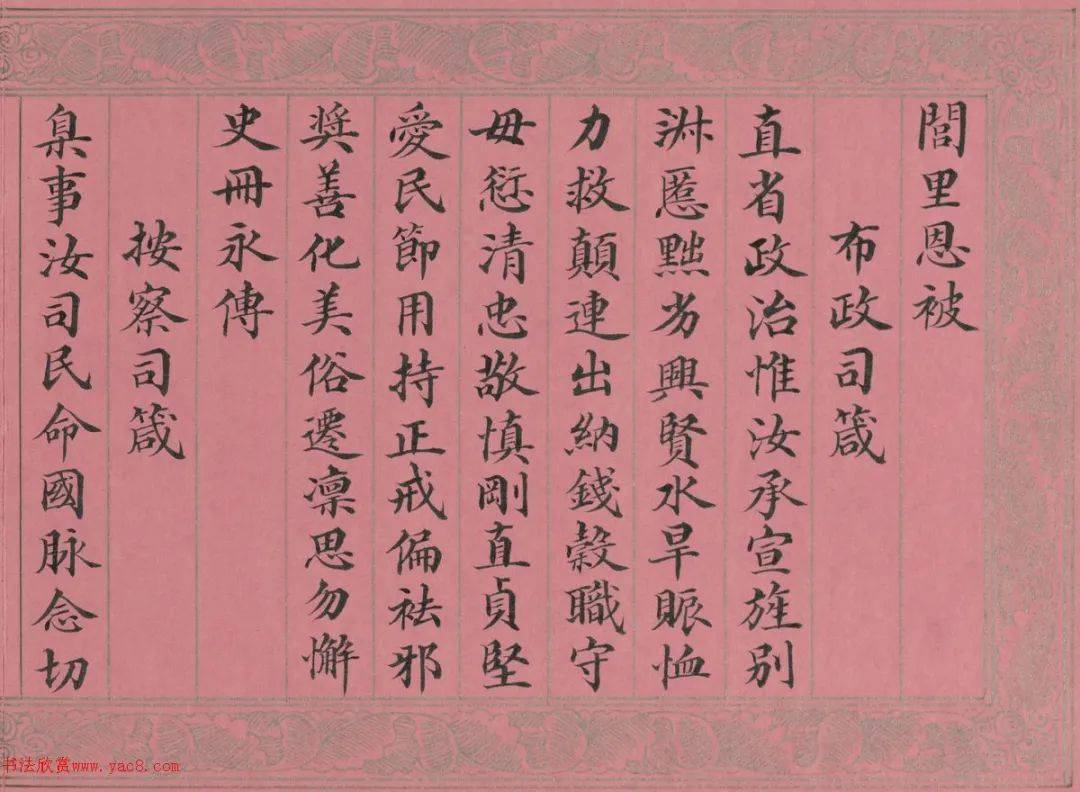 閭里恩被
布政司箴
直省政治惟汝承宣旌别
淋慝黜劣興賢水旱賑恤
力救顛連出納錢穀職守
毋愆清忠敬慎剛直貞堅
愛民節用持正戒偏祛邪
奨善化美俗遷凜思勿懈
史冊永傳
按察司箴
臬事汝司民命國脉念切
书法欣赏www.yac8.com